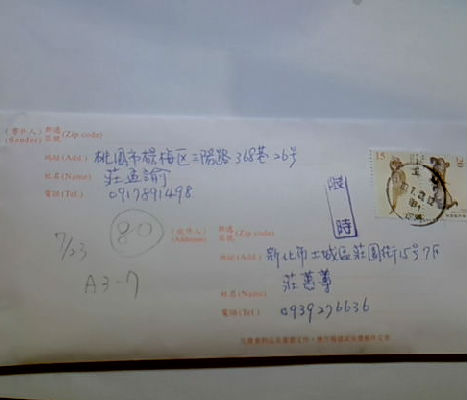 (寄件人) 郵遞區號 (Zip code)
(Sender)
地址(Add.) 桃園市楊梅区三陽路368巷26号
姓名(Name) 莊孟諭
電話(Tel.) 0917891498
15
限時
7/23
80
A3-7
(收件人) 郵遞區號 (Zip code)
(Address)
地址(Add.) 新北市土城區莊園街15号7F
姓名(Name) 莊蕙
電話(Tel.) 0939276636